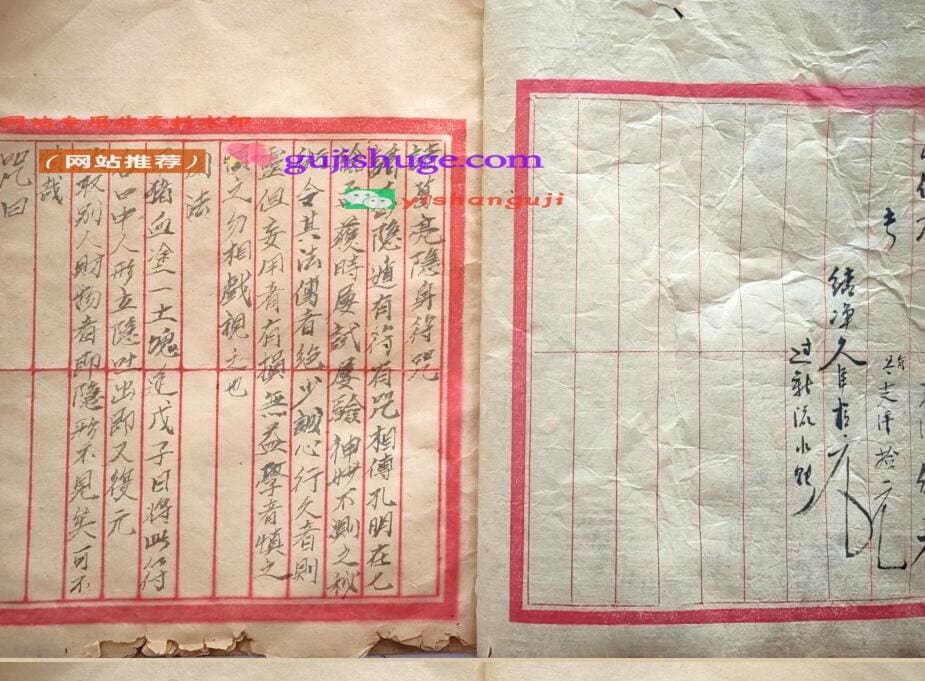 諸葛亮隱身符咒
隱遁有符有咒相傳孔明在七
擒孟獲時屢試屢驗神妙不測之秘
術今其法傳者絕少誠心行久者則
靈但妄用者有損無益學者慎之
慎之勿相戲視之也
法
猪血塗一土塊逢戊子日將此符
口中人形立隱吐出即又復元
取別人財物者即隱形不見矣可不
哉
咒曰
网站专用非资料水印
（网站推荐）
gujishuge.com
yishanguji
结净欠
过新流水账
支洋拾元